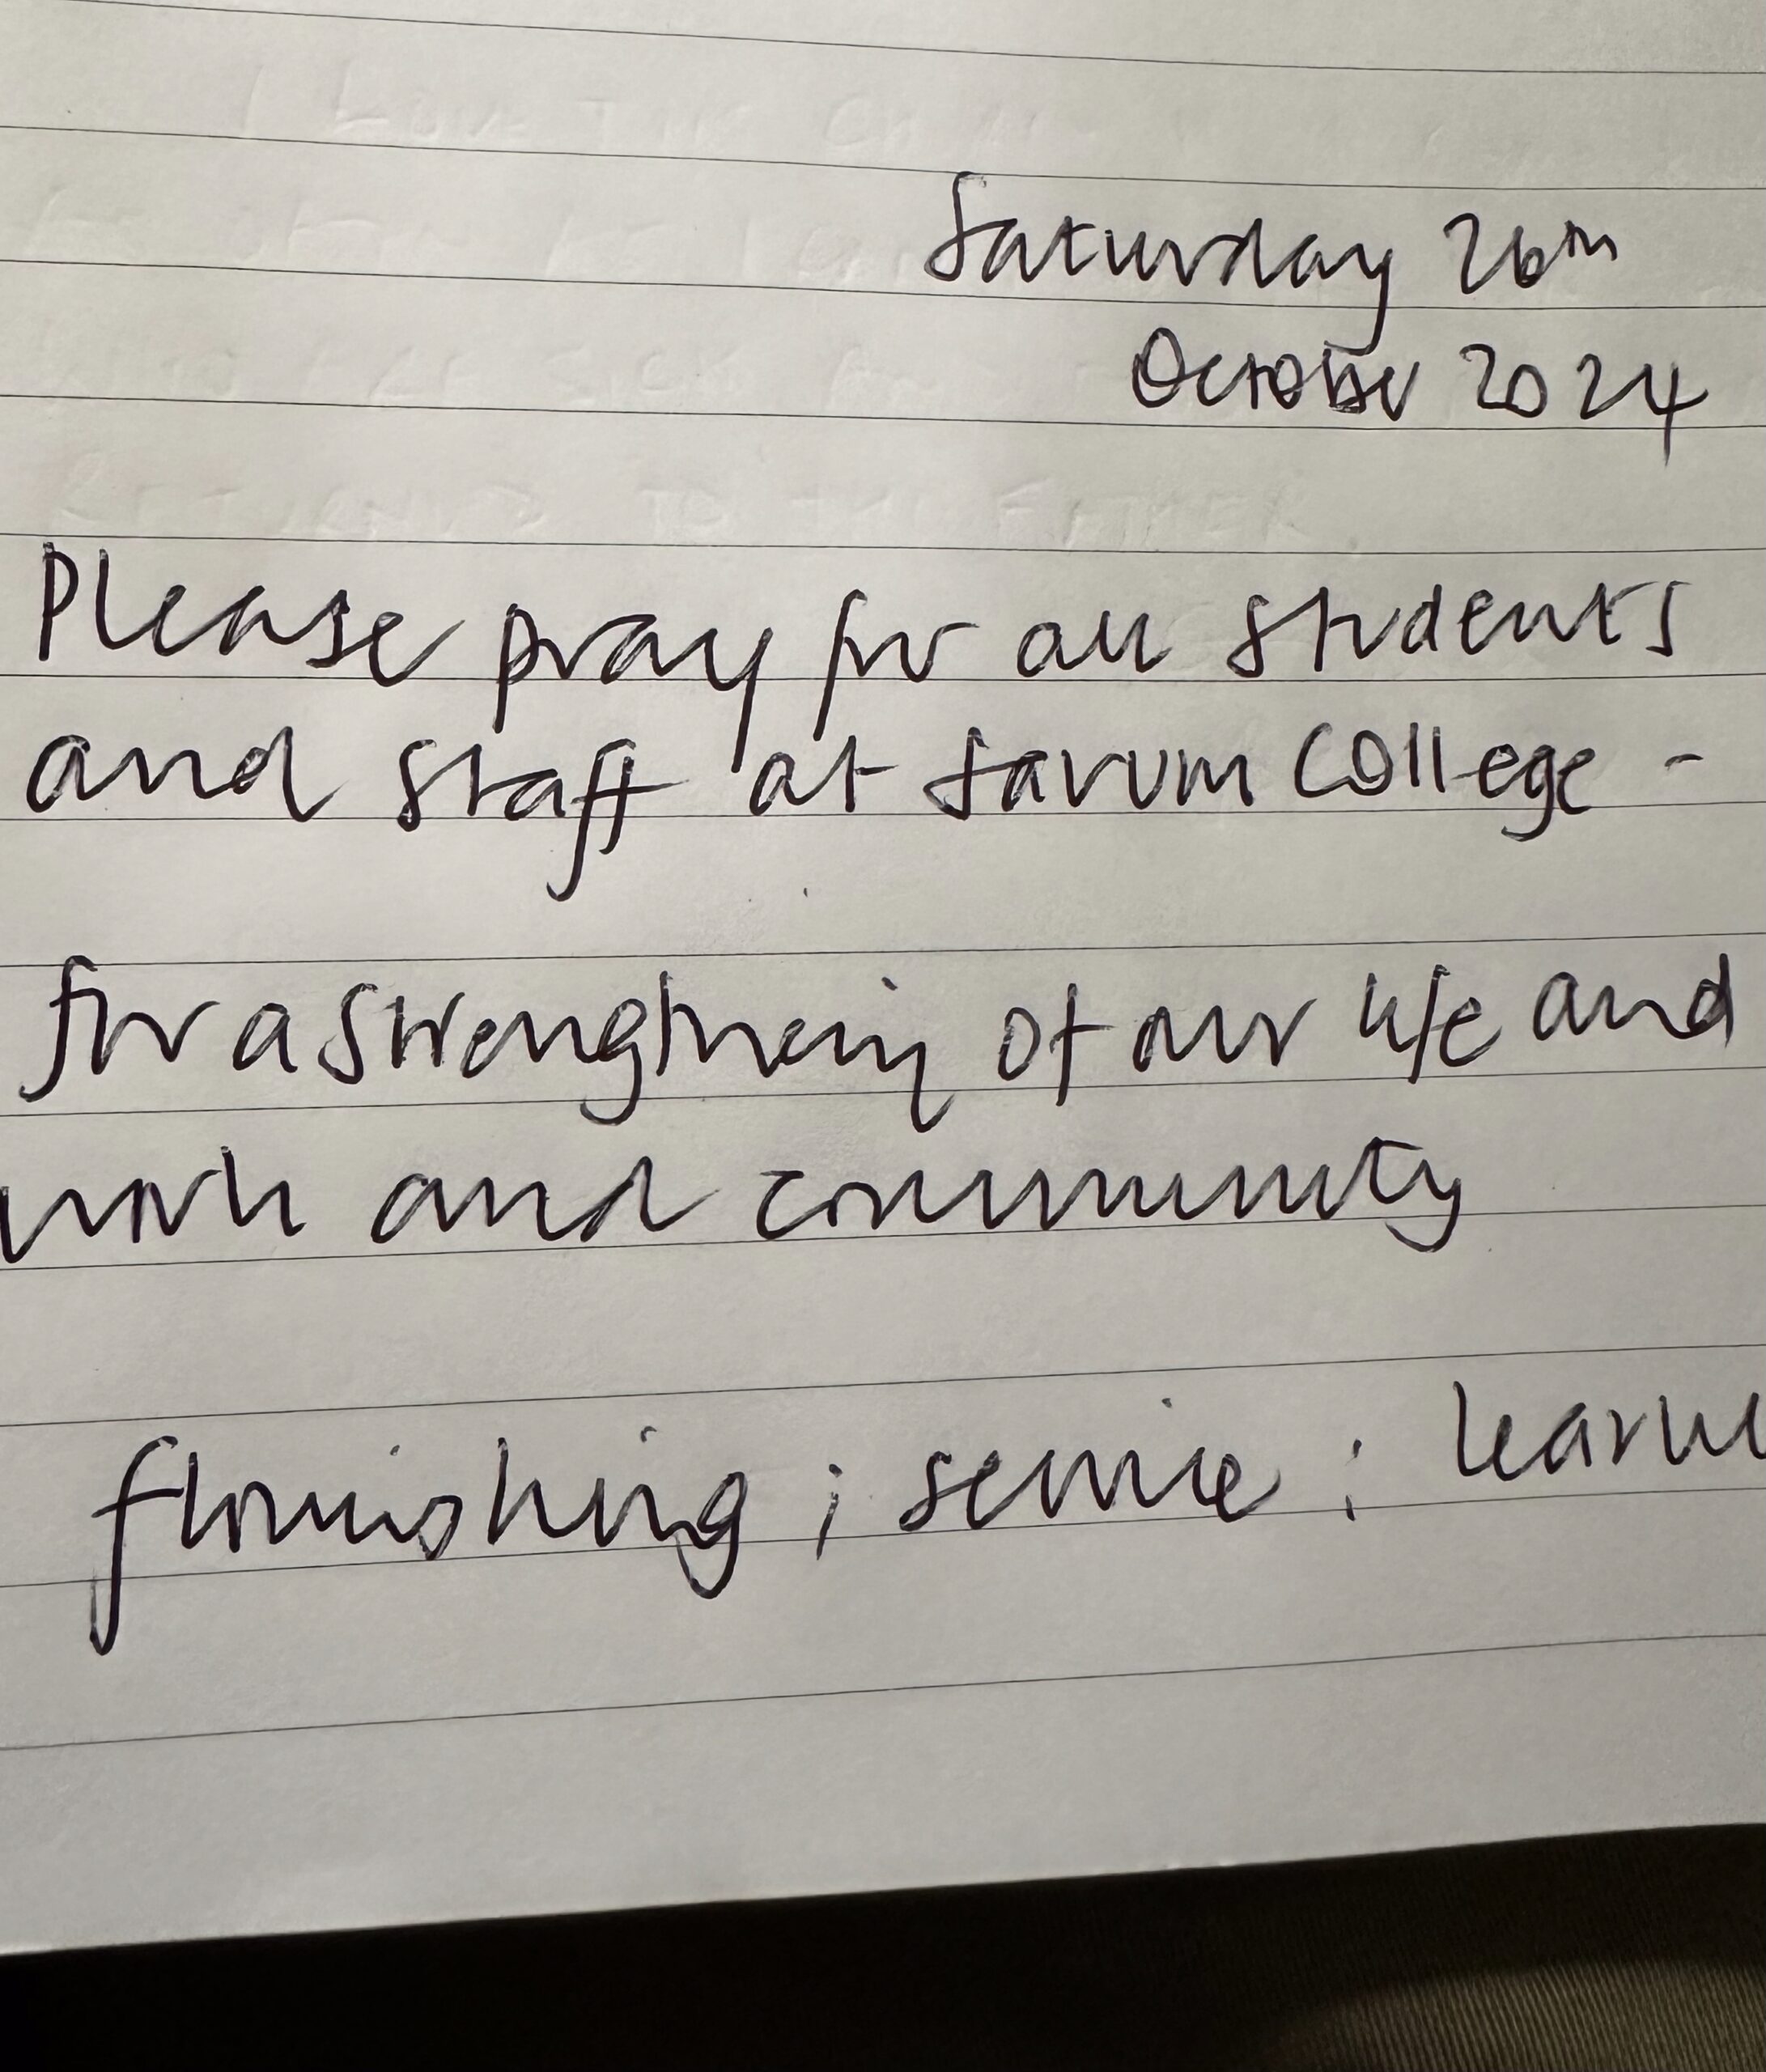 Saturday 26th
October 2024
Please pray for all students
and staff at Sarum College -
for a strengthening of our life and
work and community
flourishing ; service ;